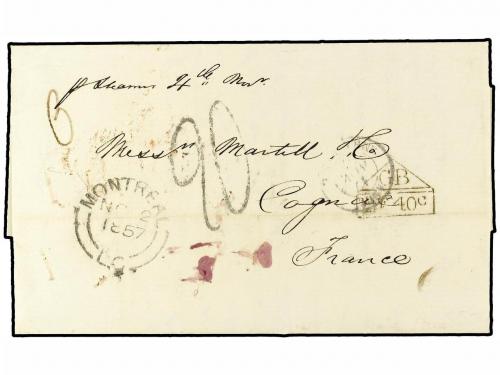 p Steamer 4th Novr.
6
Messrs Martell & Co
Cognac
France
MONTREAL
NO 2
1857
L.C
GB
40c